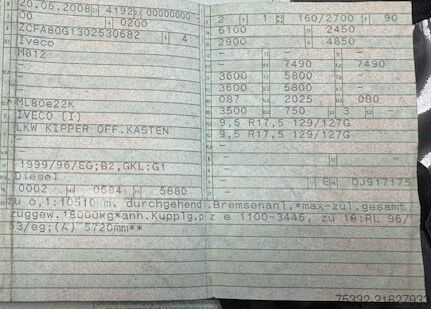 20.06.2008 4192 00000000
00 0200
ZCFA80G1302530682 4
Iveco
M812
-
-
ML80e22K
IVECO (I)
LKW KIPPER OFF.KASTEN
-
-
1999/96/EG;B2,GKL:G1
Diesel
0002 0684 5880
2 1 160/2700 90
6100 2450
2900 4850
- - -
- 7490 7490
3600 5800 -
3600 5800 -
087 2025 080
3500 750 3
9,5 R17,5 129/127G
9,5 R17,5 129/127G
-
-
- -
- E DJ917175
zu o,1:10510 m. durchgehend.Bremsenanl.*max-zul.gesamt
zuggew.18000kg*anh.Kupplg.o/z e 1100-3445, zu 18:RL 96/
53/eg;(A) 5720mm**
75332.21627932